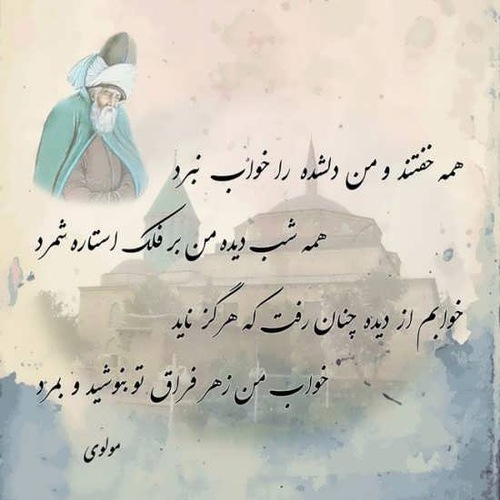 همه خفتند و من دلشده را خواب نبرد
همه شب دیده من بر فلک استاره شمرد
خوابم از دیده چنان رفت که هرگز ناید
خواب من زهر فراق تو بنوشید و بمرد
مولوی